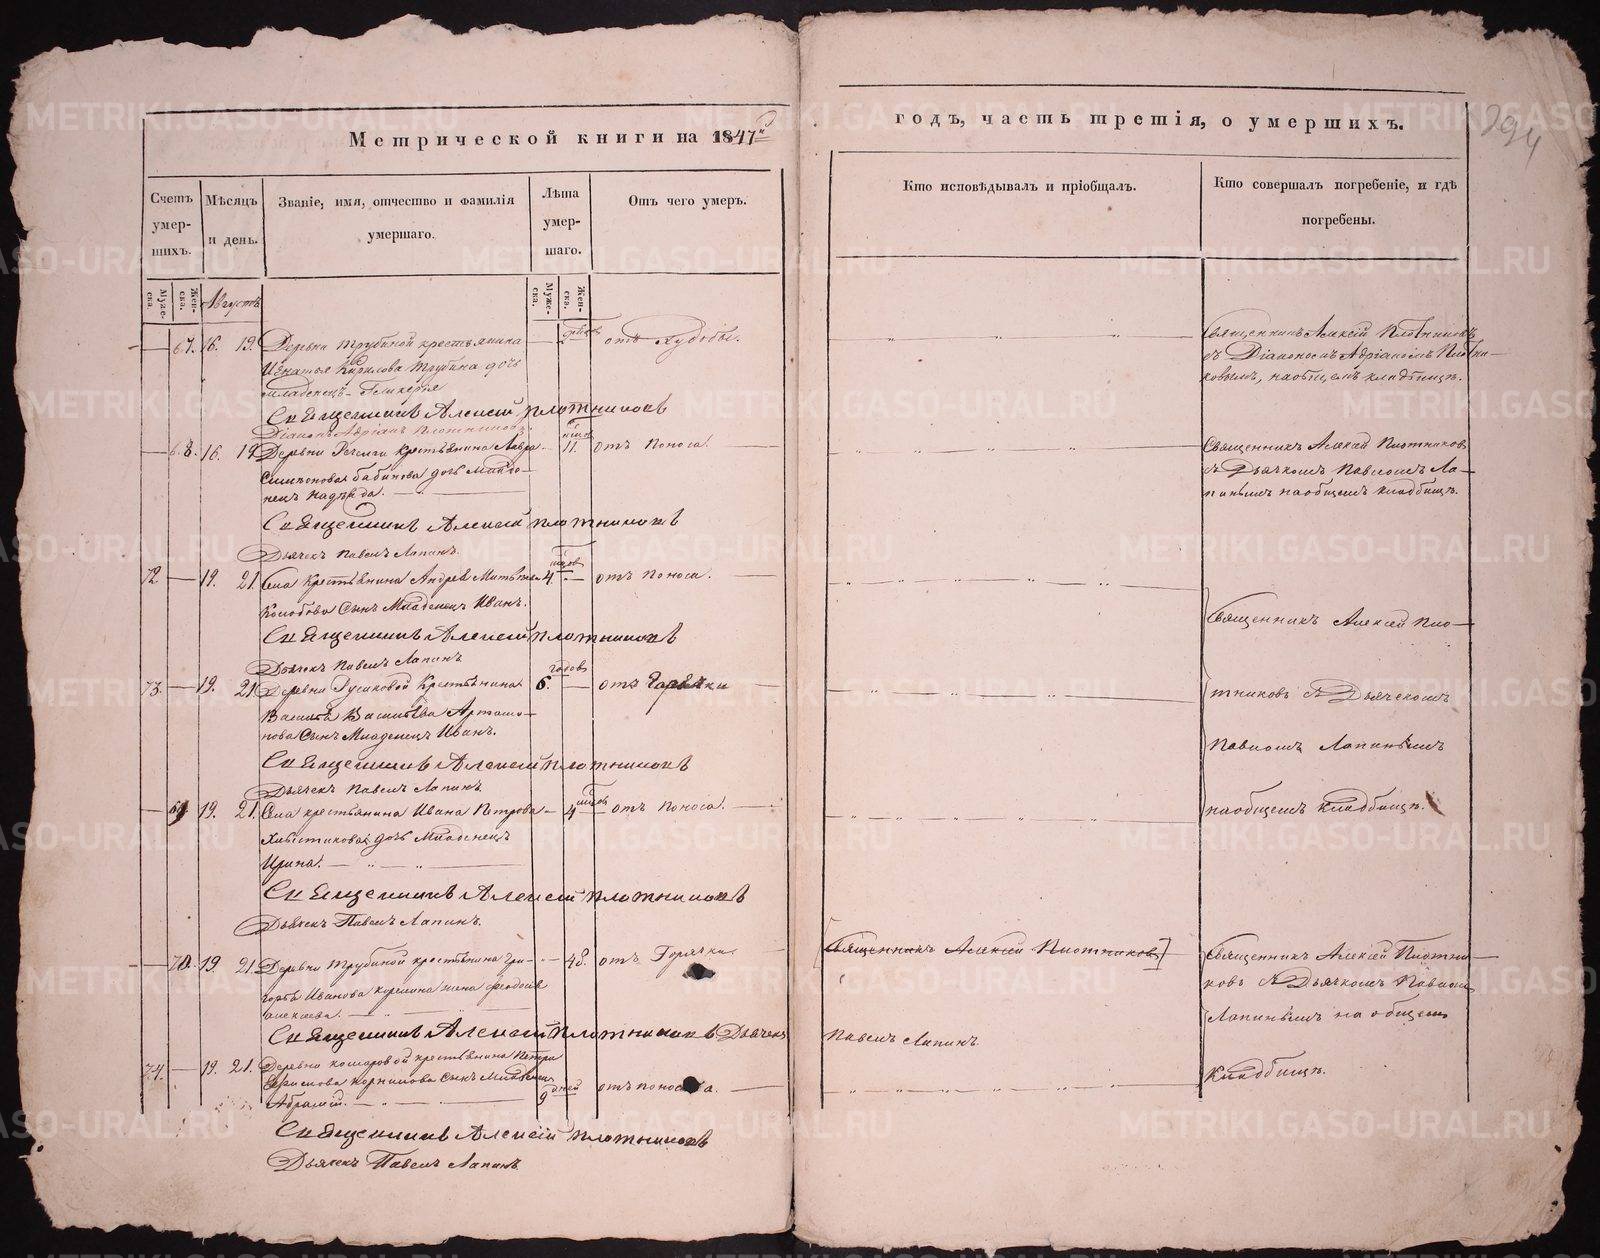 Метрической книги на 1847й
годъ, часть третія, о умершихъ.
294
Счетъ умер-шихъ.
Мѣсяцъ и день.
Званіе, имя, отчество и фамилія умершаго.
Лѣта умер-шаго.
Отъ чего умеръ.
Кто исповѣдывалъ и пріобщалъ.
Кто совершалъ погребеніе, и гдѣ погребены.
Муже-ска.
Жен-ска.
Августъ
Муже-ска.
Жен-ска.
67. 16. 19. Деревни Трубиной крестьянина
отъ Худобы.
Игнатья Кирилова Трубина дочь
младенецъ Гликерья
Священникъ Алексій Плотниковъ
съ Діакономъ Адріаномъ Плотни-
ковымъ, на общемъ кладбищѣ.
Священникъ Алексій Плотниковъ
Діаконъ Адріанъ Плотниковъ.
68. 16. 19. Деревни крестьянина Лавра
11. отъ Поноса.
Бабинова дочь младе-
нецъ Надежда.
Священникъ Алексій Плотниковъ
съ Дьячкомъ Павломъ Ла-
пинымъ на общемъ кладбищѣ.
Священникъ Алексій Плотниковъ
Дьячекъ Павелъ Лапинъ.
72 19. 21. Села крестьянина Андрея
4. отъ Поноса.
Колобова Сынъ Младенецъ Иванъ.
Священникъ Алексій Плотниковъ
Дьячекъ Павелъ Лапинъ
73. 19. 21. Деревни Гусиковой Крестьянина
6. годовъ отъ Горячки
Василья Васильева Артамо-
нова Сынъ Младенецъ Иванъ.
Священникъ Алексій Плотниковъ
Дьячекъ Павелъ Лапинъ.
69 19. 21. Села крестьянина Ивана Петрова
4 отъ Поноса.
дочь Младенецъ
Ирина.
Священникъ Алексій Пло-
тниковъ съ Дьячкомъ
Павломъ Лапинымъ
на общемъ кладбищѣ.
Священникъ Алексій Плотниковъ
Дьячекъ Павелъ Лапинъ.
70. 19. 21. Деревни Трубиной крестьянина Гри-
48. отъ Горячки
горья Иванова жена Феодосья
Алексѣева.
Священникъ Алексій Плотниковъ
Священникъ Алексій Плотни-
ковъ съ Дьячкомъ Павломъ
Лапинымъ на общемъ
кладбищѣ.
Священникъ Алексій Плотниковъ Дьячекъ
Павелъ Лапинъ.
74. 19. 21. Деревни Комаровой крестьянина Петра
Корнилова Сынъ Младенецъ
9 дней отъ поноса.
Абрамій.
Священникъ Алексій Плотниковъ
Дьячекъ Павелъ Лапинъ
METRIKI.GASO-URAL.RU